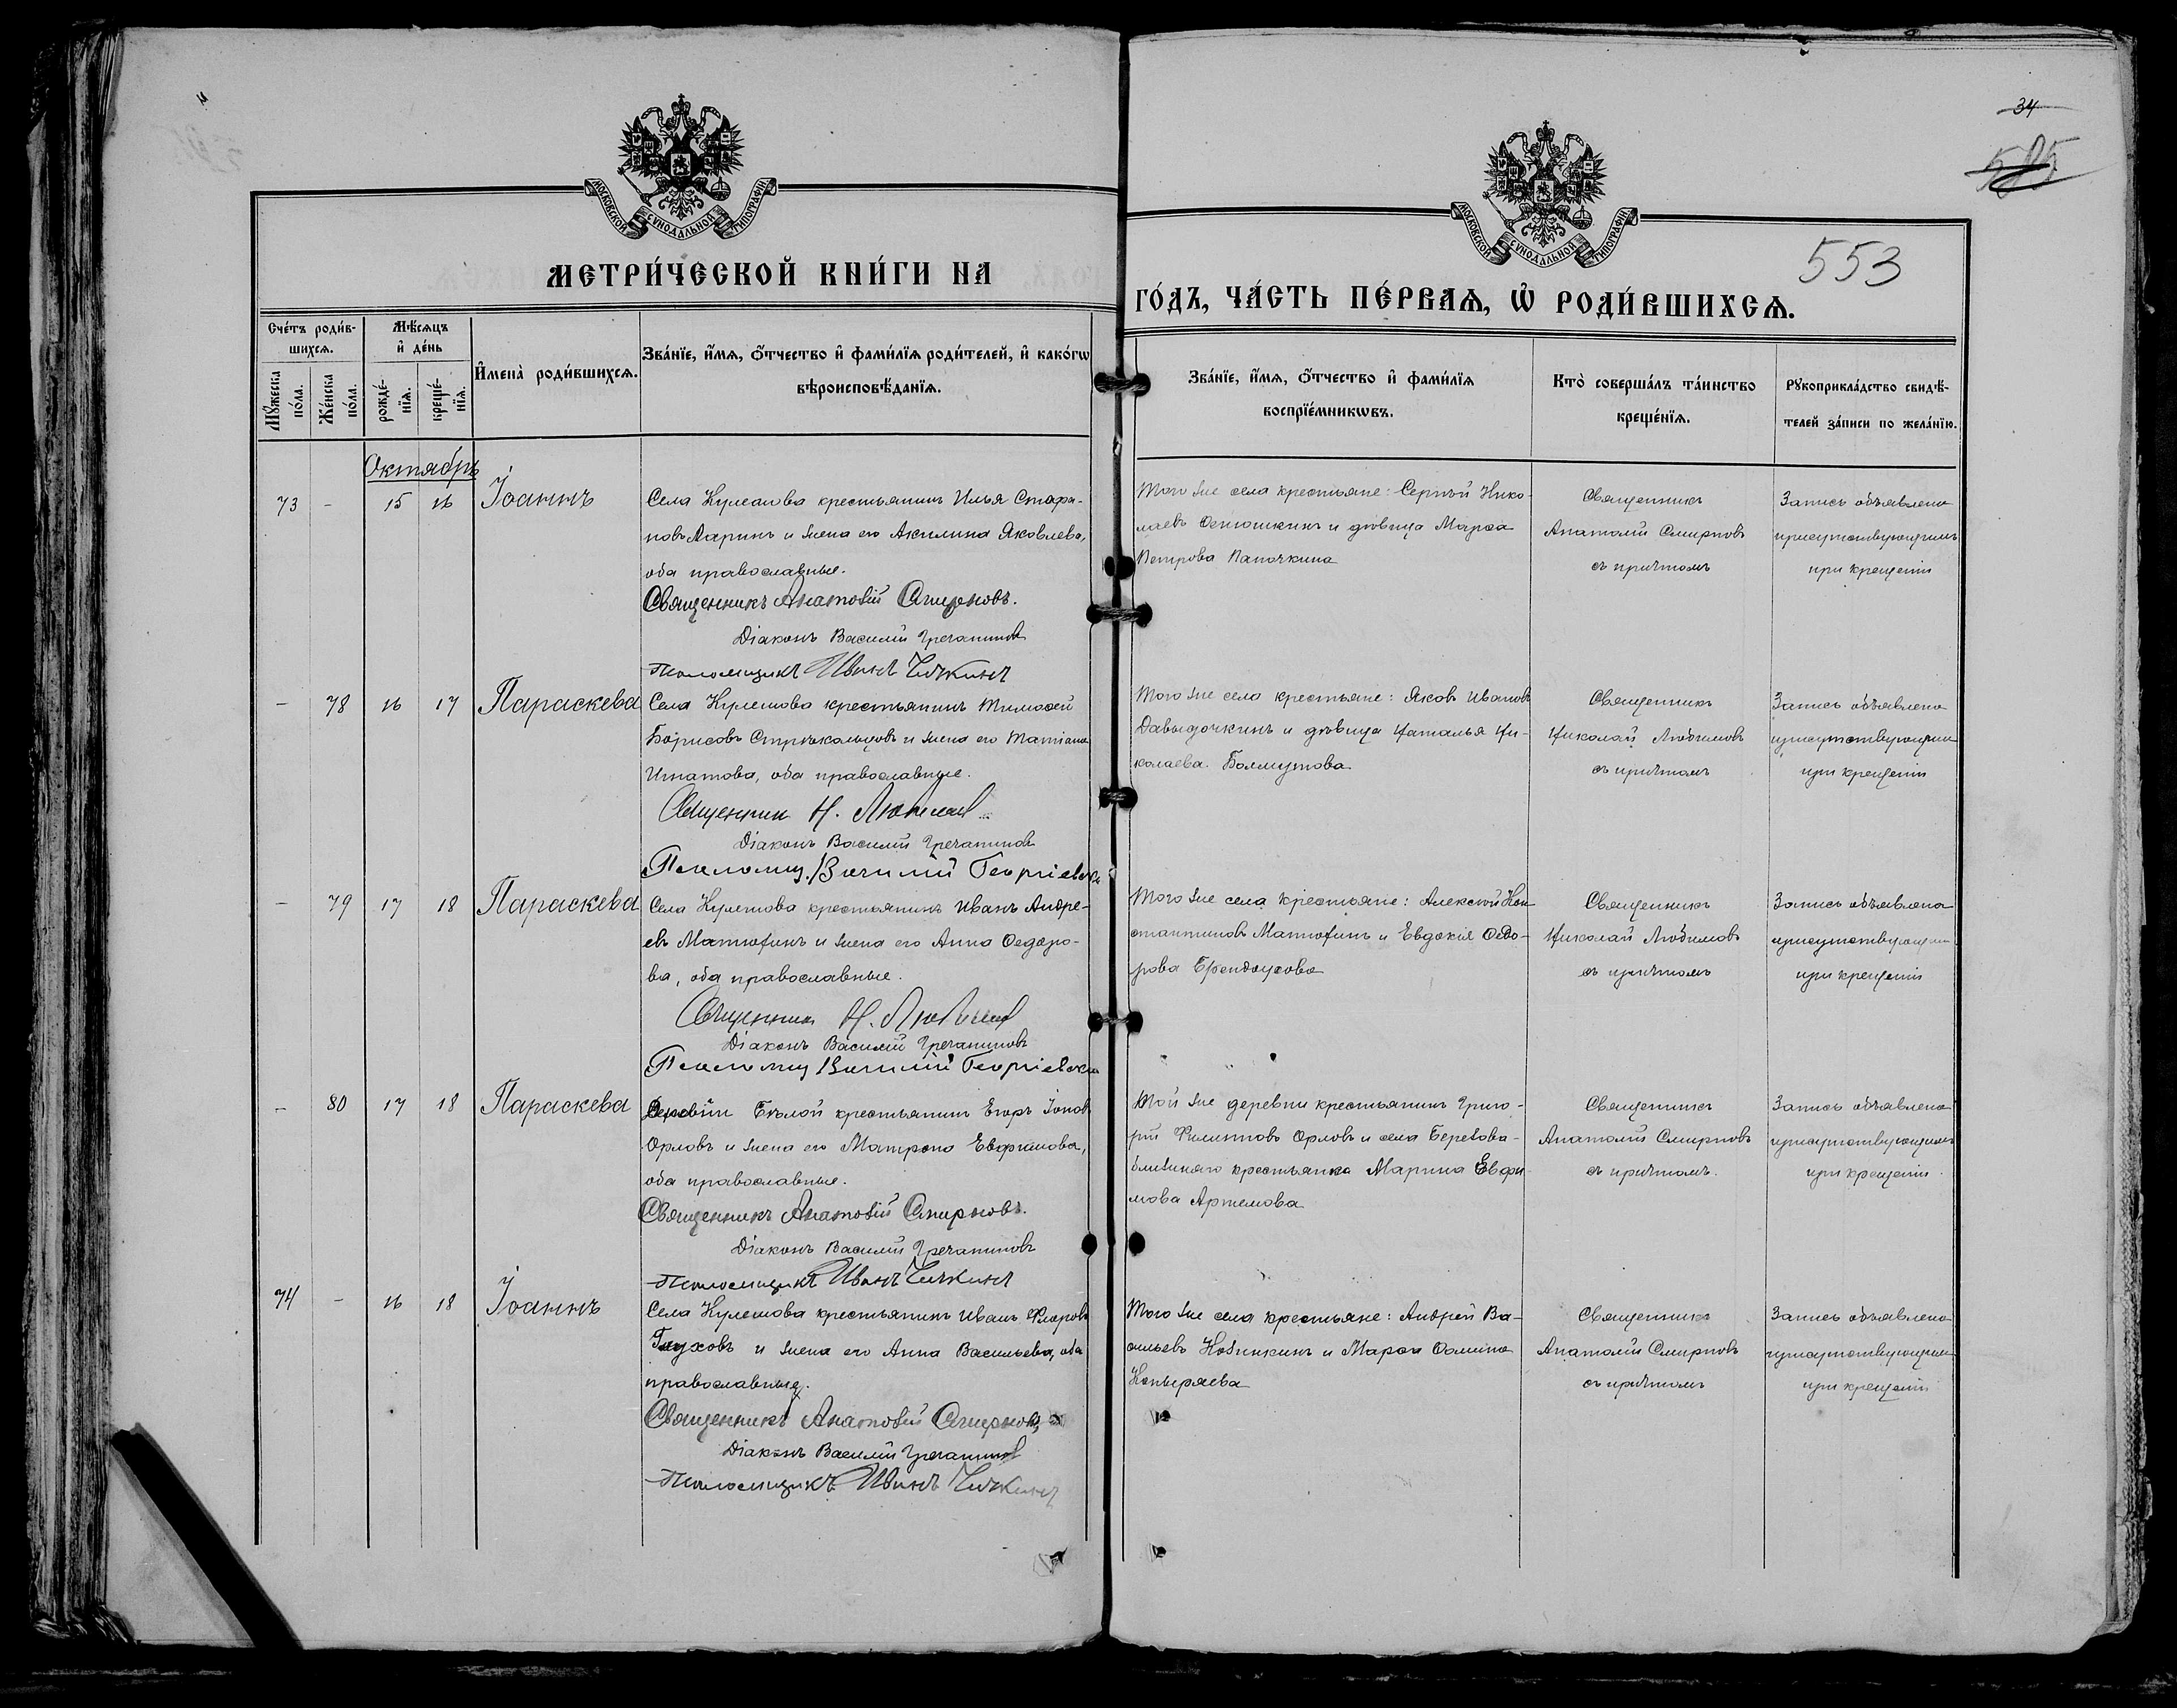 34
585
553
МОСКОВСКОЙ СѴНОДАЛЬНОЙ ТИПОГРАФІИ
МОСКОВСКОЙ СѴНОДАЛЬНОЙ ТИПОГРАФІИ
МЕТРИ́ЧЕСКОЙ КНИ́ГИ НА
ГО́ДЪ, ЧА́СТЬ ПЕ́РВАѦ, Ѡ҆ РОДИ́ВШИХСѦ.
Сче́тъ роди́в-
шихсѧ.
Мꙋ́жеска
по́ла.
Же́нска
по́ла.
Мѣ́сѧцъ
и҆ де́нь
рожде́-
нїѧ.
креще́-
нїѧ.
И҆мена̀ роди́вшихсѧ.
Зва́нїе, и҆́мѧ, ѻ҆́тчество и҆ фами́лїѧ роди́телей, и҆ како́гѡ
вѣроисповѣ́данїѧ.
Зва́нїе, и҆́мѧ, ѻ҆́тчество и҆ фами́лїѧ
воспрїе́мникѡвъ.
Кто̀ соверша́лъ та́инство
креще́нїѧ.
Рꙋкоприкла́дство свидѣ́-
телей за́писи по жела́нїю.
Октябрь
73 - 15 16 Іоаннъ
Села Кулешова крестьянинъ Илья Стефа-
новъ Ларинъ и жена его Акилина Яковлева,
оба православные.
Священникъ Анатолій Смирновъ.
Діаконъ Василій Гречаниновъ
Псаломщикъ Иванъ Чижкинъ
Того же села крестьяне: Сергѣй Нико-
лаевъ Осюшкинъ и дѣвица Марѳа
Петрова Папочкина
Священникъ
Анатолій Смирновъ
съ причтомъ
Запись объявлена
присутствующимъ
при крещеніи
- 78 16 17 Параскева
Села Кулешова крестьянинъ Тимоѳей
Борисовъ Стрѣкольцовъ и жена его Татіана
Игнатова, оба православные.
Священник Н. Любимов
Діаконъ Василій Гречаниновъ
Псаломщ. Василій Георгіевск
Того же села крестьяне: Яковъ Ивановъ
Давыдочкинъ и дѣвица Наталья Ни-
колаева Болмутова
Священникъ
Николай Любимовъ
съ причтомъ
Запись объявлена
присутствующим
при крещеніи
- 79 17 18 Параскева
Села Кулешова крестьянинъ Иванъ Андре-
евъ Матюхинъ и жена его Анна Ѳедоро-
ва, оба православные.
Священник Н. Любимов
Діаконъ Василій Гречаниновъ
Псаломщ Василій Георгіевск
Того же села крестьяне: Алексѣй Кон
стантиновъ Матюхинъ и Евдокія Ѳедо-
рова Брендоусова
Священникъ
Николай Любимовъ
съ причтомъ
Запись объявлена
присутствующим
при крещеніи
- 80 17 18 Параскева
Деревни Бѣлой крестьянинъ Егоръ Іоновъ
Орловъ и жена его Матрона Евфимова,
оба православные.
Священникъ Анатолій Смирновъ.
Діаконъ Василій Гречаниновъ
Псаломщикъ Иванъ Чижкинъ
Той же деревни крестьянинъ Григо-
рій Филипповъ Орловъ и села Березова-
ближняго крестьянка Марина Евфи
мова Артемова
Священникъ
Анатолій Смирновъ
съ причтомъ.
Запись объявлена
присутствующимъ
при крещеніи
74 - 16 18 Іоаннъ
Села Кулешова крестьянинъ Иванъ Флоровъ
Глуховъ и жена его Анна Васильева, оба
православные.
Священникъ Анатолій Смирновъ
Діаконъ Василій Гречаниновъ
Псаломщикъ Иванъ Чижкинъ
Того же села крестьяне: Андрей Ва-
сильевъ Новинкинъ и Марѳа Ѳомина
Копыряева
Священникъ
Анатолій Смирновъ
съ причтомъ
Запись объявлена
присутствующим
при крещеніи